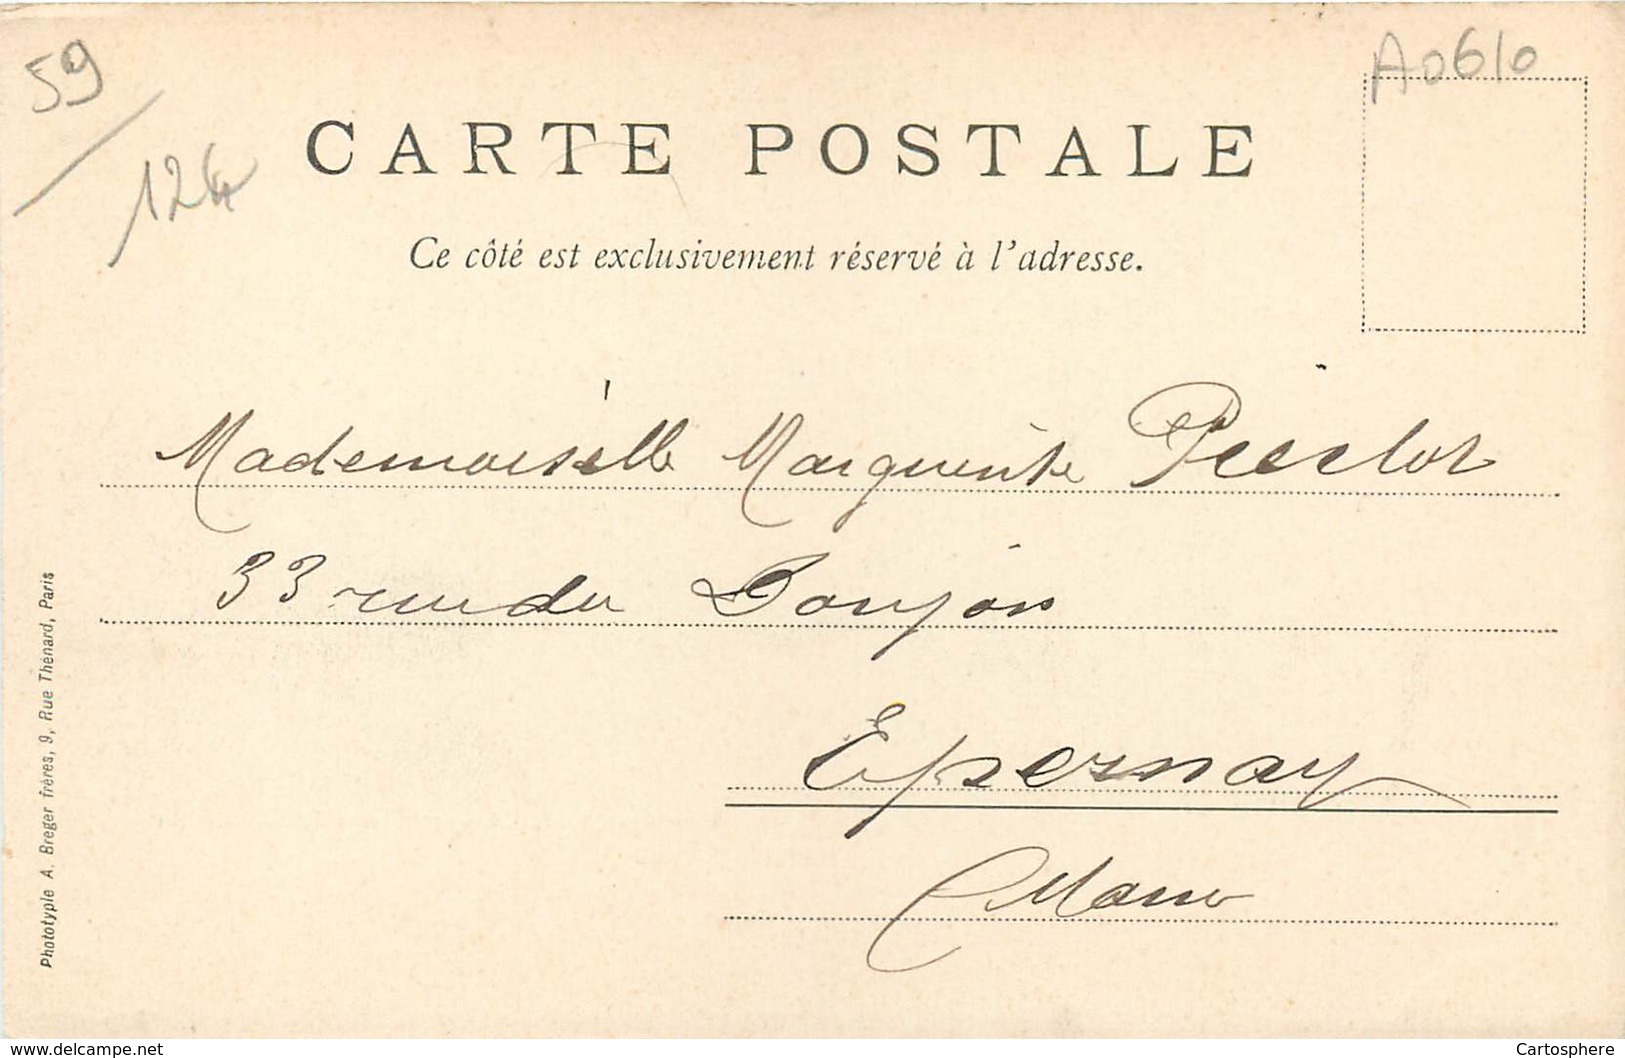 59
12€
A0610
CARTE POSTALE
Ce côté est exclusivement réservé à l'adresse.
Mademoiselle Marguerite
33 rue du Donjon
Epernay
Marne
Phototypie A. Breger frères, 9, Rue Thénard, Paris
www.delcampe.net
Cartosphere